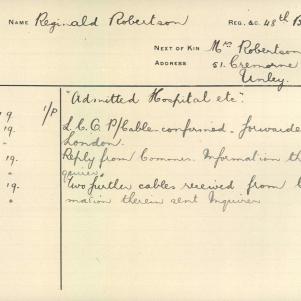 NAME Reginald Robertson REG. &C. 48th B
NEXT OF KIN Mrs Robertson
ADDRESS 51. Cremorne
Unley.
1/P "Admitted Hospital etc".
19. L.C.O P/Cable confirmed - forwarde
19. London.
" Reply from Commr. Information th
" quirer
19. Two further cables received from L
" mation therein sent Inquirer